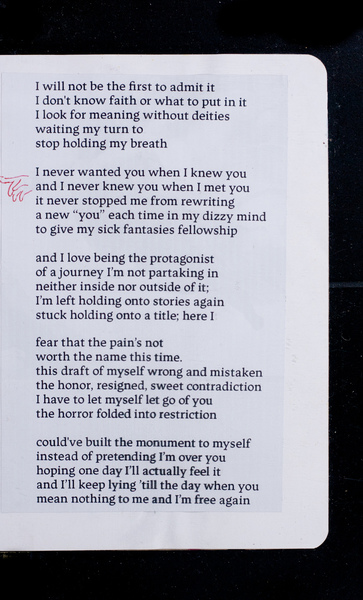 I will not be the first to admit it
I don't know faith or what to put in it
I look for meaning without deities
waiting my turn to
stop holding my breath
I never wanted you when I knew you
and I never knew you when I met you
it never stopped me from rewriting
a new “you” each time in my dizzy mind
to give my sick fantasies fellowship
and I love being the protagonist
of a journey I'm not partaking in
neither inside nor outside of it;
I'm left holding onto stories again
stuck holding onto a title; here I
fear that the pain's not
worth the name this time.
this draft of myself wrong and mistaken
the honor, resigned, sweet contradiction
I have to let myself let go of you
the horror folded into restriction
could've built the monument to myself
instead of pretending I'm over you
hoping one day I'll actually feel it
and I'll keep lying 'till the day when you
mean nothing to me and I'm free again